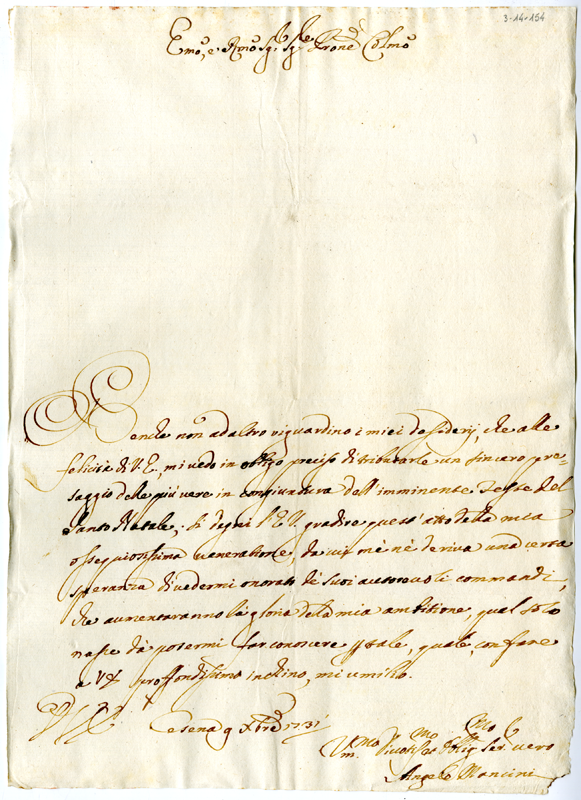 3-14-154
Emo, e Rmo Sigr. Sigr. Prone Colmo
Benche non ad altro riguardino i miei desiderij, che alle
felicità di V. E., mi vedo in obligo preciso di tributarle un sincero pre-
saggio delle più vere in congiuntura dell'imminente Feste del
Santo Natale; Si degni l'E.V. gradire quest'atto della mia
ossequiosissima veneratione, da cui me nè deriva una certa
speranza di vedermi onorato de suoi autorevoli commandi,
che aumentaranno la gloria della mia ambitione, qual solo
nasce dà potermi far conoscere tale, quale, con fare
a V.E. proffondissimo inchino, mi umilio.
Cesena 9 Xbre 1731
Vm. mo Divotmo Oblig Ser vero
Angelo Mancini